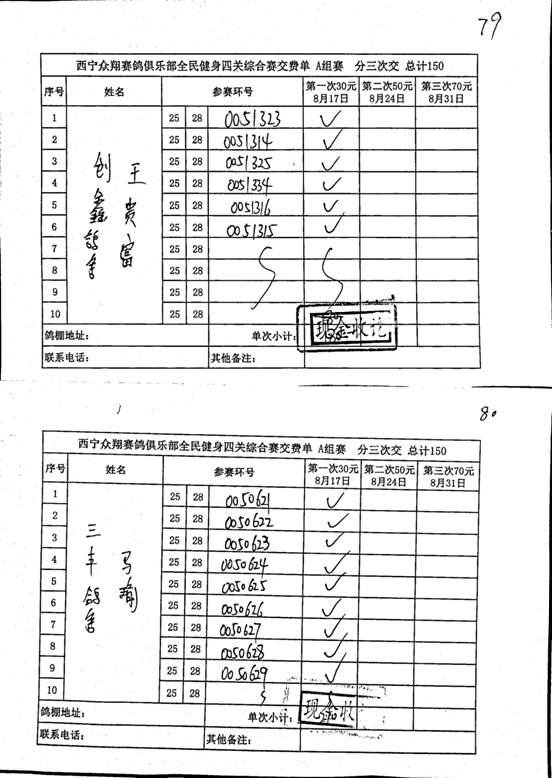 79
西宁众翔赛鸽俱乐部全民健身四关综合赛交费单 A组赛 分三次交 总计150
序号 姓名 参赛环号 第一次30元 8月17日 第二次50元 8月24日 第三次70元 8月31日
创鑫鸽舍 王贵富
1 25 28 0051323 ✓
2 25 28 0051314 ✓
3 25 28 0051325 ✓
4 25 28 0051334 ✓
5 25 28 0051316 ✓
6 25 28 0051315 ✓
7 25 28
8 25 28
9 25 28
10 25 28
鸽棚地址: 单次小计: 现金收讫
联系电话: 其他备注:
80
西宁众翔赛鸽俱乐部全民健身四关综合赛交费单 A组赛 分三次交 总计150
序号 姓名 参赛环号 第一次30元 8月17日 第二次50元 8月24日 第三次70元 8月31日
三丰鸽舍 马
1 25 28 0050621 ✓
2 25 28 0050622 ✓
3 25 28 0050623 ✓
4 25 28 0050624 ✓
5 25 28 0050625 ✓
6 25 28 0050626 ✓
7 25 28 0050627 ✓
8 25 28 0050628 ✓
9 25 28 0050629 ✓
10 25 28
鸽棚地址: 单次小计: 现金收
联系电话: 其他备注: